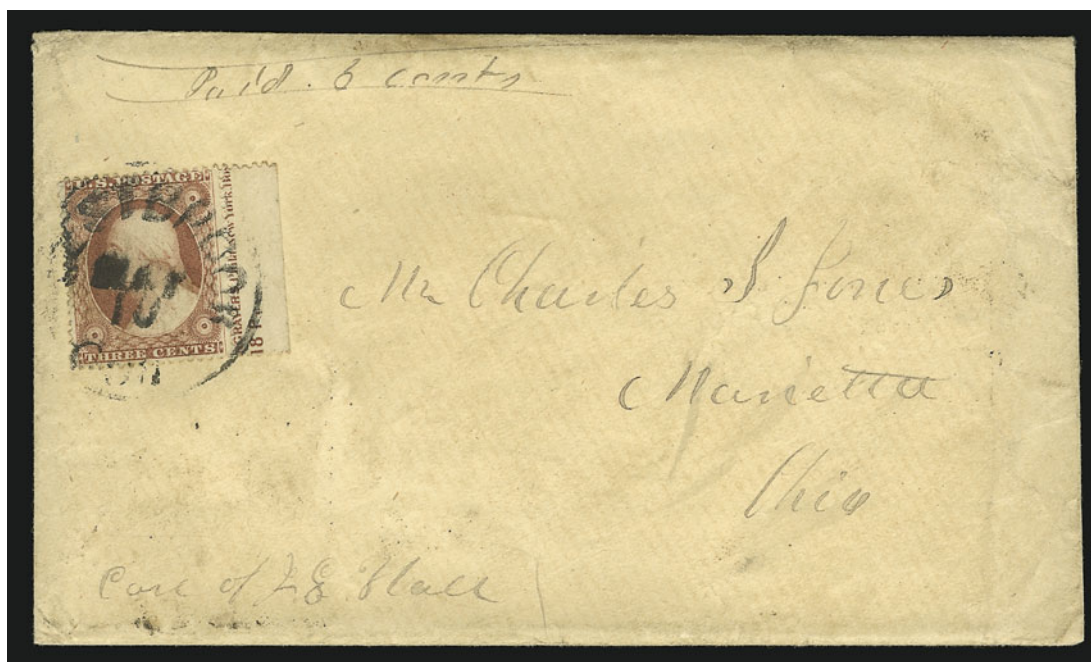 Paid. 6 cents
U.S. POSTAGE
MAY
10
THREE CENTS
New York
18 P
Mr Charles S Jones
Marietta
Ohio
Care of
Hall